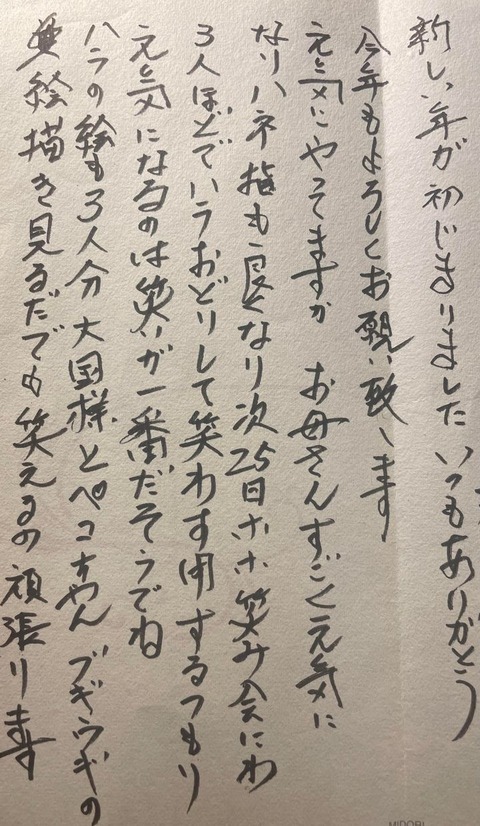 新しい年が初じまりました いつもありがとう
今年もよろしくお願い致します
元気にやってますか お母さんすごく元気に
なりバネ指も良くなり次25日ホホ笑み会にわ
3人ほどでハラおどりして笑わす用するつもり
元気になるのは笑いが一番だそうでね
ハラの絵も3人分大国様とペコちゃんブギウギの
絵描き見るだでも笑えるの頑張ります
MIDORI